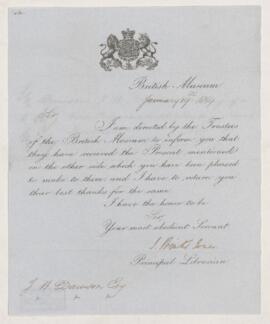 British Museum
January 19th 18
Sir
I am directed by the Trustees
of the British Museum to inform you that
they have received the Present mentioned
on the other side which you have been pleased
to make to them and I have to return you
their best thanks for the same.
I have the honor to be
Sir
Your most obedient Servant
J. Winter Jones
Principal Librarian
J. W. Dawson Esq